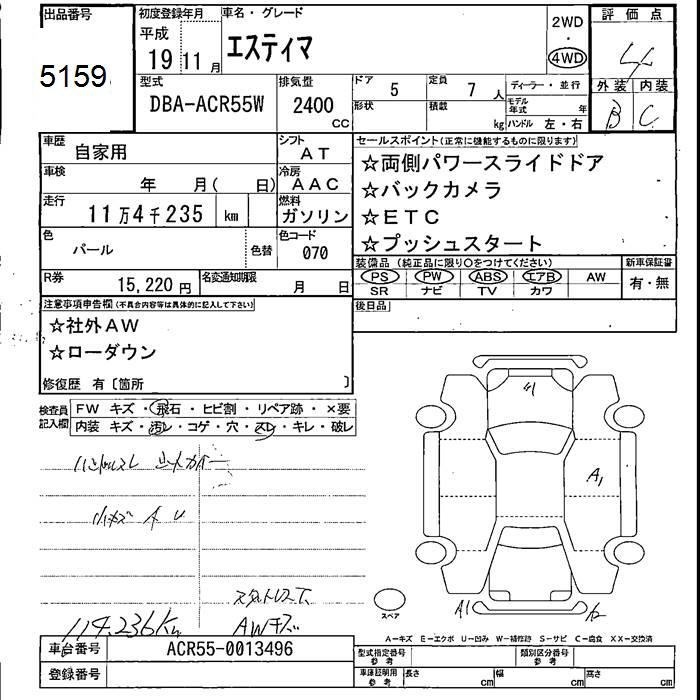 出品番号
5159
初度登録年月
平成
19年 11月
車名・グレード
エスティマ
2WD
・
4WD
評価点
4
外装 内装
B C
型式
DBA-ACR55W
排気量
2400
CC
ドア
5
定員
7 人
形状
積載
kg
ディーラー・並行
モデル年式
年
ハンドル 左・右
車歴
自家用
シフト
AT
車検
年 月( 日)
冷房
AAC
走行
11万4千235 km
燃料
ガソリン
色
パール
色替
色コード
070
R券
15,220円
名変通知期限
月 日
セールスポイント(正常に機能するものに限ります)
☆両側パワースライドドア
☆バックカメラ
☆ETC
☆プッシュスタート
装備品 (純正品に限り○をつけてください)
PS PW ABS エアB AW
SR ナビ TV カワ
新車保証書
有・無
後日品
注意事項申告欄(不具合内容等は具体的に記入して下さい)
☆社外AW
☆ローダウン
修復歴 有〔箇所 〕
検査員
記入欄
FW キズ・飛石・ヒビ割・リペア跡・×要
内装 キズ・汚レ・コゲ・穴・スレ・キレ・破レ
ハンドルスレ
小キズ A U
スタットレス T.
114.236Km
AWキズ
A1
A1
A2
スペア
A－キズ E－エクボ U－凹み W－補修跡 S－サビ C－腐食 XX－交換済
車台番号
ACR55-0013496
登録番号
型式指定番号
参考
類別区分番号
参考
車庫証明用
参考
長さ cm
幅 cm
高さ cm